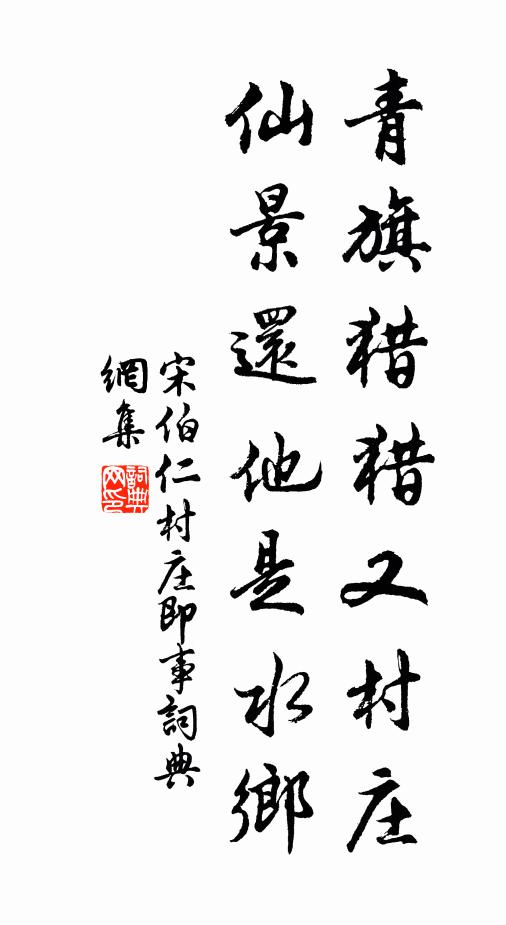 青旗猎猎又村庄
仙景還他是水鄉
宋伯仁村庄即事詞典
網集
詞典
网印